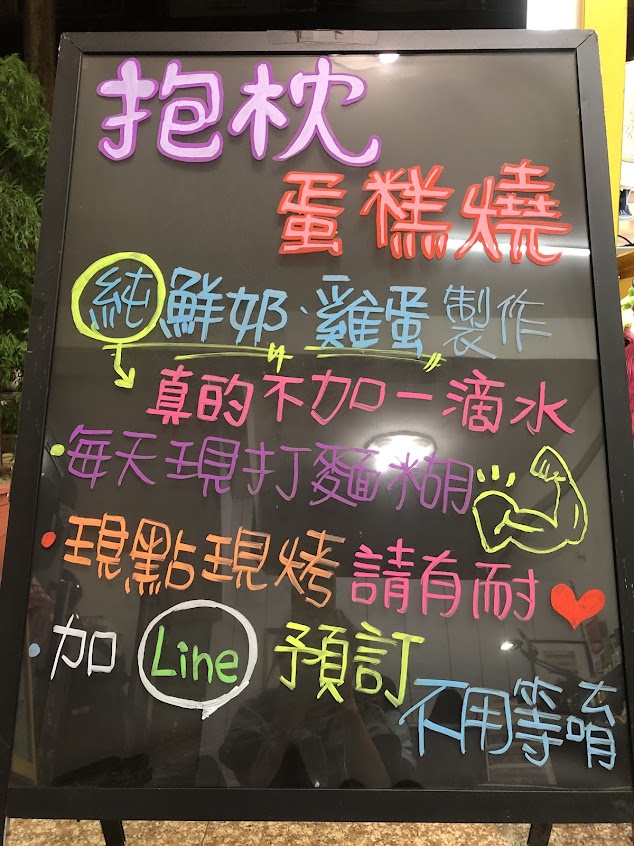 抱枕
蛋糕燒
純鮮奶、雞蛋製作
真的不加一滴水
每天現打麵糊
現點現烤 請有耐
加 Line 預訂
不用等唷